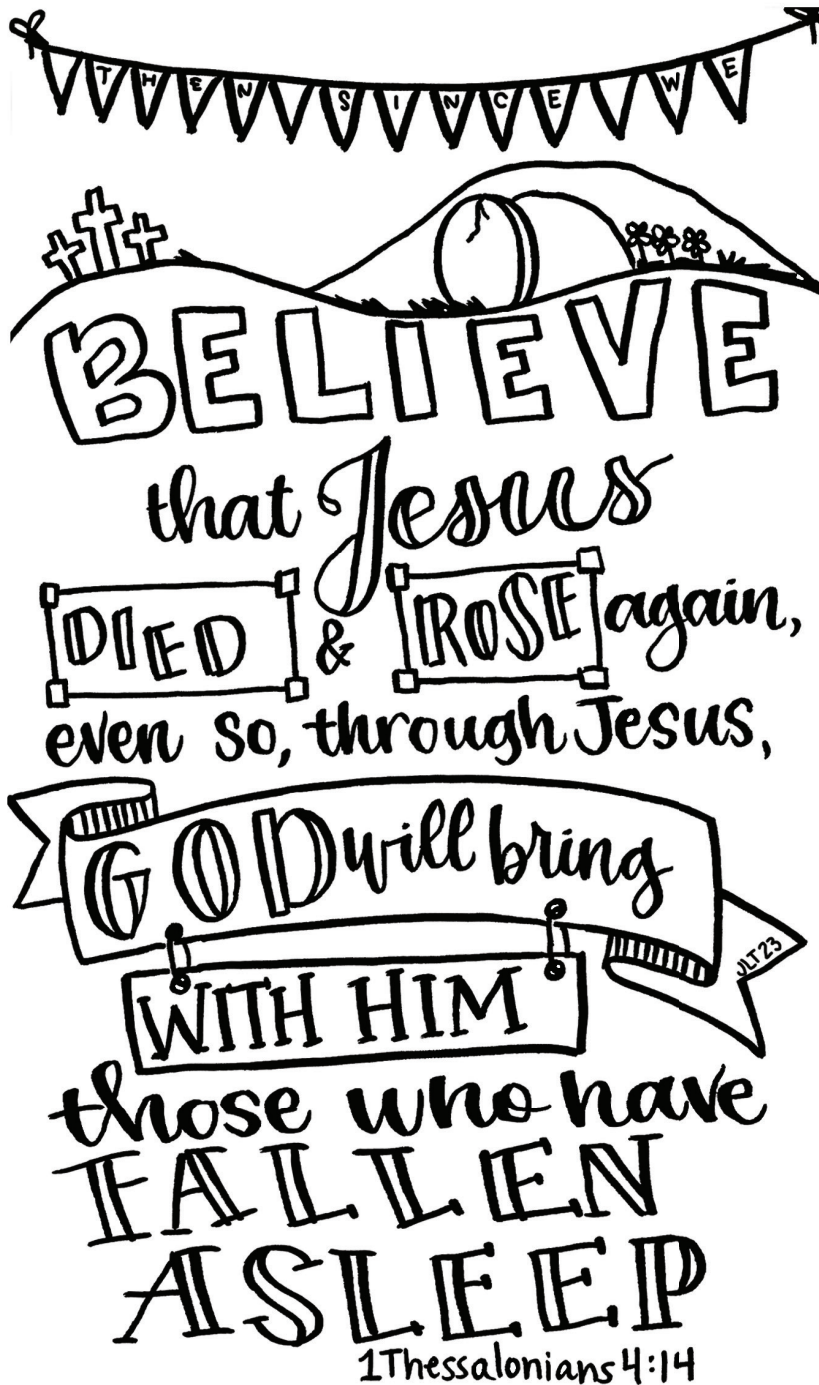 THEN SINCE WE
BELIEVE
that Jesus
DIED & ROSE again,
even so, through Jesus,
GOD will bring
JLT23
WITH HIM
those who have
FALLEN
ASLEEP
1Thessalonians 4:14